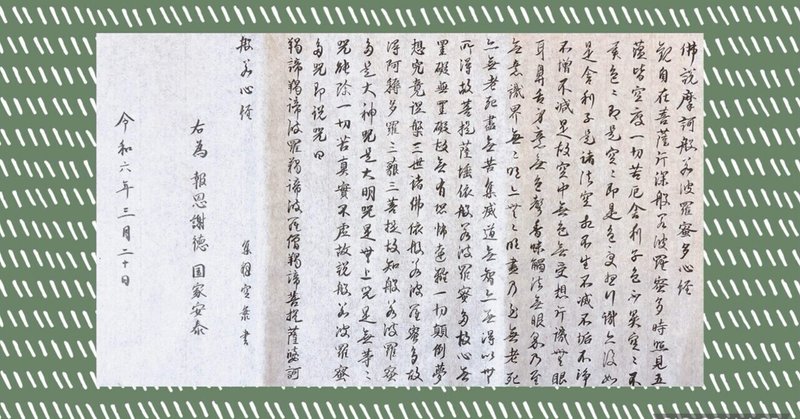 佛説摩訶般若波羅蜜多心経
観自在菩薩行深般若波羅蜜多時照見五
蘊皆空度一切苦厄舎利子色不異空々不
異色々即是空々即是色受想行識亦復如
是舎利子是諸法空相不生不滅不垢不浄
不増不減是故空中無色無受想行識無眼
耳鼻舌身意無色聲香味觸法無眼界乃至
無意識界無々明亦無々明盡乃至無老死
亦無老死盡無苦集滅道無智亦無得以無
所得故菩提薩埵依般若波羅蜜多故心無
罣礙無罣礙故無有恐怖遠離一切顛倒夢
想究竟涅槃三世諸佛依般若波羅蜜多故
得阿耨多羅三藐三菩提故知般若波羅蜜
多是大神咒是大明咒是無上咒是無等々
咒能除一切苦真實不虚故説般若波羅蜜
多咒即説咒曰
羯諦羯諦波羅羯諦波羅僧羯諦菩提薩婆訶
般若心経
書
右為 報恩謝徳 国家安泰
令和六年三月二十日